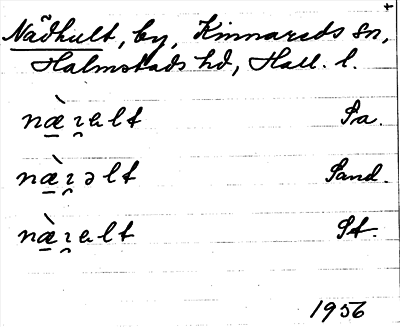 Nädhult, by, Kinnareds sn,
Halmstads hd, Hall. l.
næ̀ɿɐlt Sa.
næ̀ɿəlt Sand.
næ̀ɿɐlt St.
1956